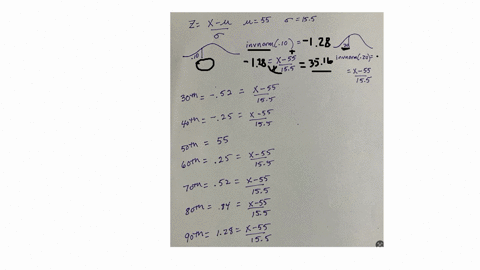 Z = X-μ/σ μ=55 σ=15.5
.10 invnorm(.10) = -1.28 invnorm(.20)=
-1.28 = X-55/15.5 = 35.16 = X-55/15.5
30th = -.52 = X-55/15.5
40th = -.25 = X-55/15.5
50th = 55
60th = .25 = X-55/15.5
70th = .52 = X-55/15.5
80th = .84 = X-55/15.5
90th = 1.28 = X-55/15.5